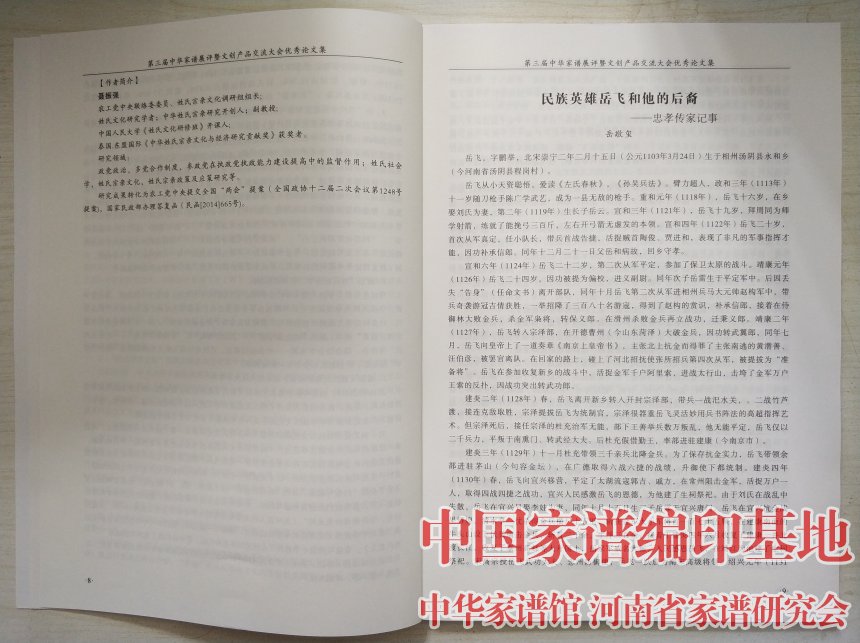 第三届中华家谱展评暨文创产品交流大会优秀论文集
【作者简介】
聂振强
农工党中央联络委委员、姓氏宗亲文化调研组组长；
姓氏文化研究学者；中华姓氏宗亲研究开创人；副教授；
中国人民大学《姓氏文化研修班》开课人；
泰国在盟国际《中华姓氏宗亲文化与经济研究贡献奖》获奖者。
研究领域：
政党政治，多党合作制度，参政党在执政党执政能力建设提高中的监督作用；姓氏社会
学，姓氏宗亲文化，姓氏宗亲政策及应策研究等。
研究成果转化为农工党中央提交全国“两会”提案（全国政协十二届二次会议第1248号
提案），国家民政部办理答复函（民函[2014]665号）。
·8·
第三届中华家谱展评暨文创产品交流大会优秀论文集
民族英雄岳飞和他的后裔
——忠孝传家记事
岳歆玺
岳飞，字鹏举，北宋崇宁二年二月十五日（公元1103年3月24日）生于相州汤阴县永和乡
（今河南省汤阴县程岗村）。
岳飞从小天资聪悟，爱读《左氏春秋》、《孙吴兵法》。臂力超人，政和三年（1113年）
十一岁随刀枪手陈广学武艺，成为一县无敌的枪手。重和元年（1118年），岳飞十六岁，在乡
娶刘氏为妻，第二年（1119年）生长子岳云。宣和三年（1121年），岳飞十九岁，拜周同为师
学射箭，练就了能挽弓三百斤，左右开弓箭无虚发的本领。宣和四年（1122年）岳飞二十岁，
首次从军真定，任小队长，带兵首战告捷，活捉贼首陶俊、贾进和，表现了非凡的军事指挥才
能，因功补承信郎。同年十二月二十一日父岳和病故，回乡守孝。
宣和六年（1124年）岳飞二十二岁，第二次从军平定，参加了保卫太原的战斗。靖康元年
（1126年）岳飞二十四岁，因功被提为偏校，进义副尉。同年次子岳雷生于平定军中。后因丢
失“告身”（任命文书）离开部队，同年十月岳飞第二次从军进相州兵马大元帅赵构军中。带
兵奇袭游冠吉倩获胜，一举招降了三百八十名游寇，得到了赵构的赏识，补承信郎。接着在侍
御林大败金兵，杀金军枭将，转保义郎。在滑州杀败金兵再立战功，迁秉义郎。靖康二年
（1127年），岳飞转入宗泽部，在开德曹州（今山东菏泽）大破金兵，因功转武翼郎。同年七
月，岳飞向皇帝上了一道奏章《南京上皇帝书》，主张北上抗金而得罪了主张南逃的黄潜善、
汪伯彦，被罢官离队。在回家的路上，碰上了河北招抚使张所招兵第四次从军，被提拔为“准
备将”。岳飞在参加收复新乡的战斗中，活捉金军千户阿里索，进战太行山，击垮了金军万户
王索的反扑，因战功突出转武功郎。
建炎二年（1128年）春，岳飞离开新乡转入开封宗泽部，带兵一战汜水关，、二战竹芦
渡，接连克敌取胜，宗泽提拔岳飞为统制官。宗泽很器重岳飞灵活妙用兵书阵法的高超指挥艺
术。但宗泽死后，接任宗泽的杜充治军无能，部下王善举兵数万叛乱，他无能平定，岳飞仅以
二千兵力，平叛于南熏门，转武经大夫。后杜充假借勤王，率部进驻建康（今南京市）。
建炎三年（1129年）十一月杜充带领三千亲兵北降金兵。为了保存抗金实力，岳飞带领余
部进驻茅山（今句容金坛），在广德取得六战六捷的战绩，升御使下都统制。建炎四年
（1130年）春，岳飞向宜兴移营，平定了太湖流寇郭吉、戚力，在常州阻击金军，活捉万户一
人，取得四战四捷之战功，宜兴人民感激岳飞的恩德，为他建了生祠祭祀。由于刘氏在战乱中
中国家谱编印基地
中华家谱馆 河南省家谱研究会